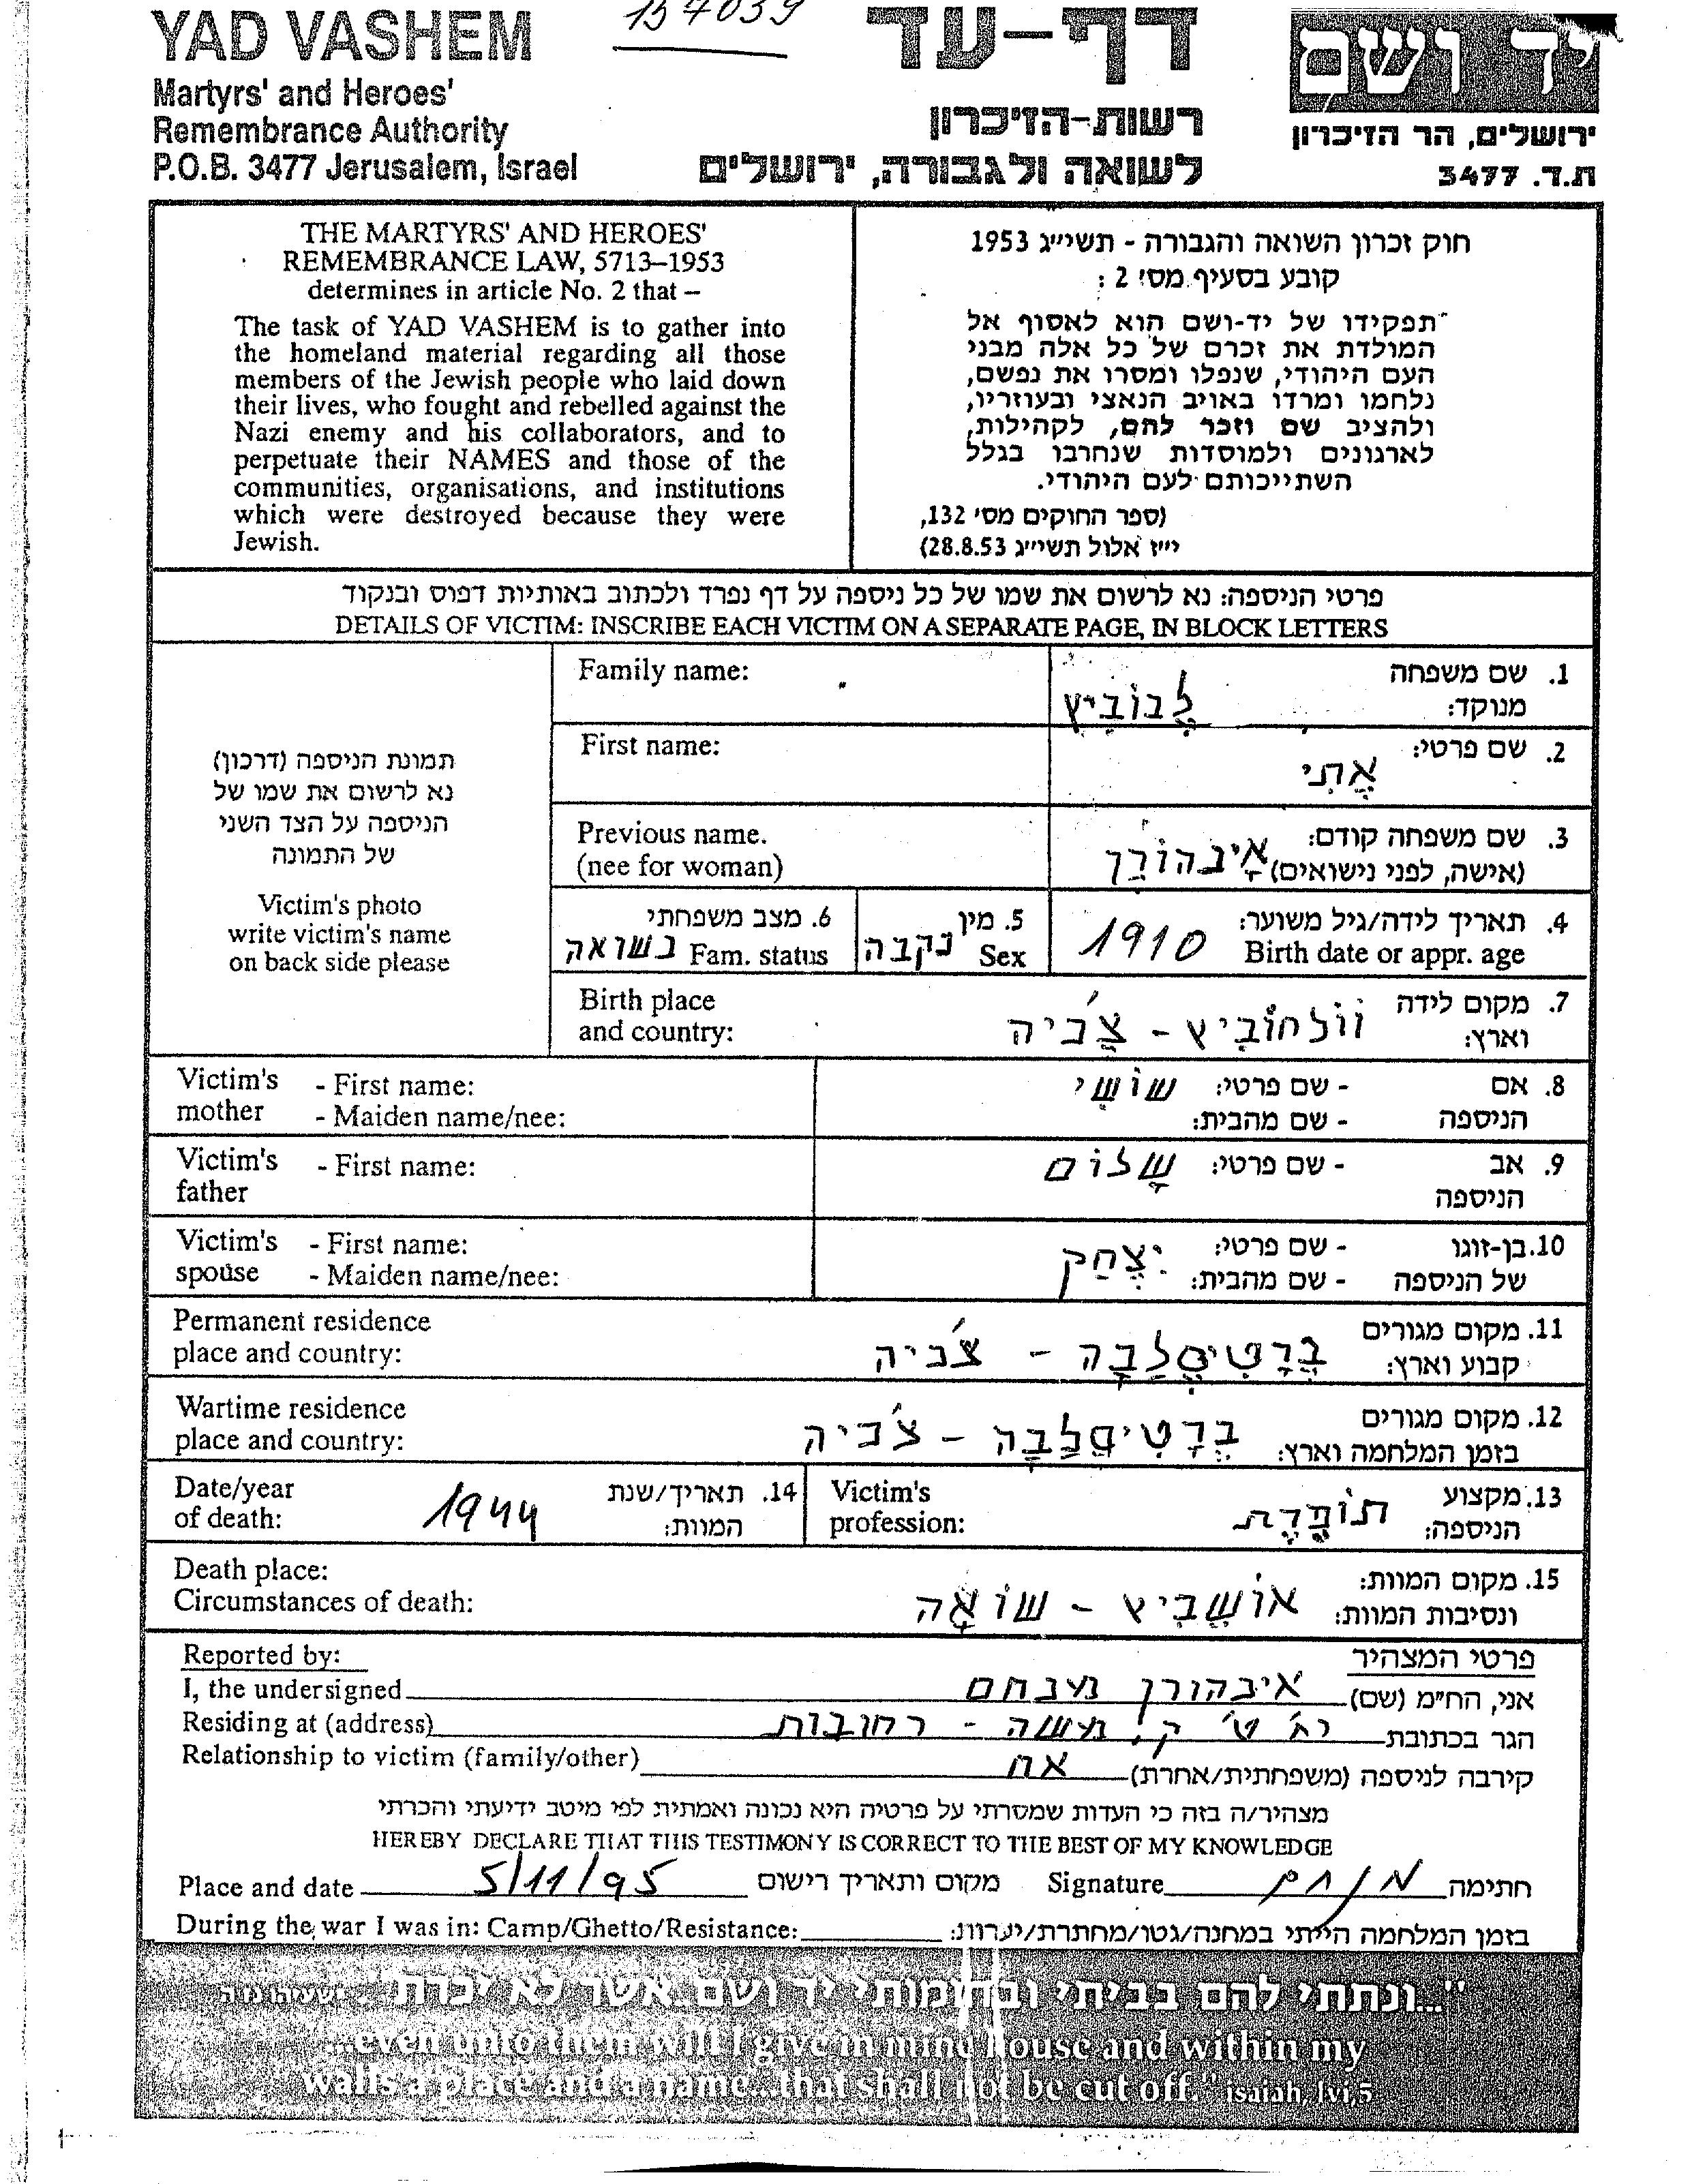 YAD VASHEM
Martyrs' and Heroes'
Remembrance Authority
P.O.B. 3477 Jerusalem, Israel
154039
דף-עד
רשות-הזיכרון
לשואה ולגבורה, ירושלים
יד ושם
ירושלים, הר הזיכרון
ת.ד. 3477
THE MARTYRS' AND HEROES'
REMEMBRANCE LAW, 5713–1953
determines in article No. 2 that –
The task of YAD VASHEM is to gather into
the homeland material regarding all those
members of the Jewish people who laid down
their lives, who fought and rebelled against the
Nazi enemy and his collaborators, and to
perpetuate their NAMES and those of the
communities, organisations, and institutions
which were destroyed because they were
Jewish.
חוק זכרון השואה והגבורה - תשי״ג 1953
קובע בסעיף מס׳ 2 :
״תפקידו של יד-ושם הוא לאסוף אל
המולדת את זכרם של כל אלה מבני
העם היהודי, שנפלו ומסרו את נפשם,
נלחמו ומרדו באויב הנאצי ובעוזריו,
ולהציב שם וזכר להם, לקהילות,
לארגונים ולמוסדות שנחרבו בגלל
השתייכותם לעם היהודי.
(ספר החוקים מס׳ 132,
י״ז אלול תשי״ג 28.8.53)
פרטי הניספה: נא לרשום את שמו של כל ניספה על דף נפרד ולכתוב באותיות דפוס ובנקוד
DETAILS OF VICTIM: INSCRIBE EACH VICTIM ON A SEPARATE PAGE, IN BLOCK LETTERS
תמונת הניספה (דרכון)
נא לרשום את שמו של
הניספה על הצד השני
של התמונה
Victim's photo
write victim's name
on back side please
Family name: 1. שם משפחה
מנוקד: לבוביץ
First name: 2. שם פרטי: אתי
Previous name. 3. שם משפחה קודם:
(nee for woman) (אישה, לפני נישואים) איבהורן
4. תאריך לידה/גיל משוער: 5. מין 6. מצב משפחתי
Birth date or appr. age 1910 Sex נקבה Fam. status נשואה
Birth place 7. מקום לידה
and country: וארץ: וולחוביץ - צ׳כיה
Victim's - First name: 8. אם - שם פרטי: שושי
mother - Maiden name/nee: הניספה - שם מהבית:
Victim's - First name: 9. אב - שם פרטי: שלום
father הניספה
Victim's - First name: 10. בן-זוגו - שם פרטי: יצחק
spouse - Maiden name/nee: של הניספה - שם מהבית:
Permanent residence 11. מקום מגורים
place and country: קבוע וארץ: ברטיסלבה - צ׳כיה
Wartime residence 12. מקום מגורים
place and country: בזמן המלחמה וארץ: ברטיסלבה - צ׳כיה
Date/year 14. תאריך/שנת Victim's 13. מקצוע
of death: 1944 המוות: profession: הניספה: תופרת
Death place: 15. מקום המוות:
Circumstances of death: ונסיבות המוות: אושביץ - שואה
Reported by: פרטי המצהיר
I, the undersigned אני, הח״מ (שם) איבהורן מנחם
Residing at (address) הגר בכתובת רח׳ ט׳ ק. משה - רחובות
Relationship to victim (family/other) קירבה לניספה (משפחתית/אחרת) אח
מצהיר/ה בזה כי העדות שמסרתי על פרטיה היא נכונה ואמתית לפי מיטב ידיעתי והכרתי
HEREBY DECLARE THAT THIS TESTIMONY IS CORRECT TO THE BEST OF MY KNOWLEDGE
Place and date 5/11/95 מקום ותאריך רישום Signature מנחם חתימה
During the war I was in: Camp/Ghetto/Resistance: בזמן המלחמה הייתי במחנה/גטו/מחתרת/יערות:
"...ונתתי להם בביתי ובחומותי יד ושם אשר לא יכרת" ישעיהו נו ה
"...even unto them will I give in mine house and within my
walls a place and a name...that shall not be cut off." isaiah, lvi,5